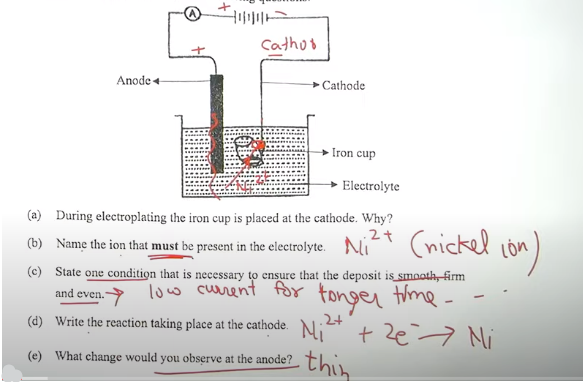 A
+
−
+
cathod
Anode
Cathode
Iron cup
Ni²⁺
Electrolyte
(a) During electroplating the iron cup is placed at the cathode. Why?
(b) Name the ion that must be present in the electrolyte. Ni²⁺ (nickel ion)
(c) State one condition that is necessary to ensure that the deposit is smooth, firm
and even. → low current for longer time - - .
(d) Write the reaction taking place at the cathode. Ni²⁺ + 2e⁻ → Ni
(e) What change would you observe at the anode? thin